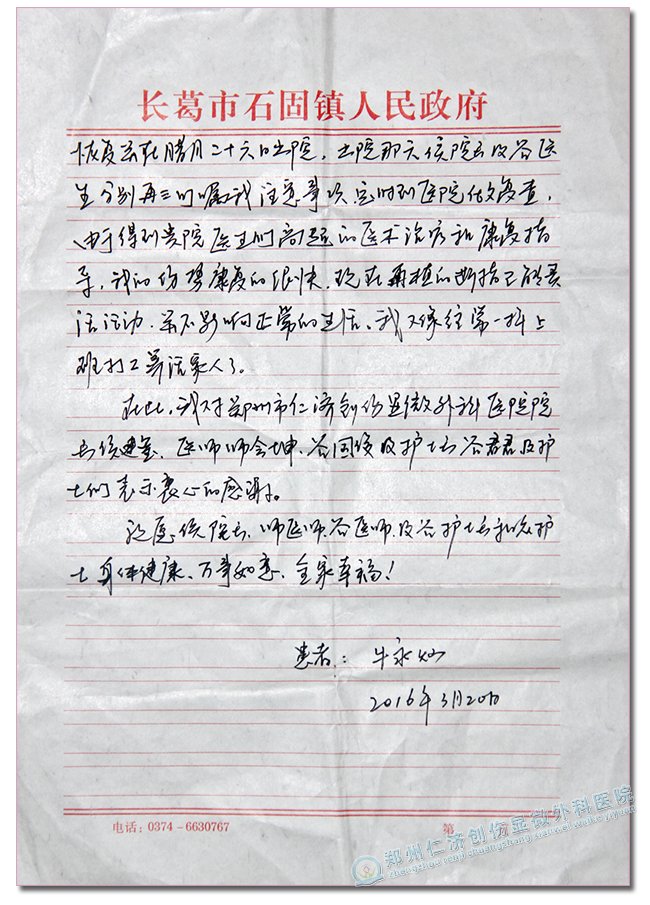 长葛市石固镇人民政府
恢复云我腊月二十六日出院，出院那天侯院长及谷医
生分别再三叮嘱我注意事项定时到医院做复查，
由于得到贵院医生们高超的医术治疗和康复指
导，我的伤势康复的很快，现在再植的断指已能灵
活活动，并不影响正常的生活，我又像往常一样上
班打工养活家人了。
在此，我对郑州市仁济创伤显微外科医院院
长侯建玺、医师师会坤、谷国俊及护士长谷君君及护
士们表示衷心的感谢。
祝愿侯院长、师医师、谷医师、及谷护士长和众护
士身体健康、万事如意、全家幸福！
患者：牛永灿
2016年3月20日
电话：0374-6630767
第 页
郑州仁济创伤显微外科医院